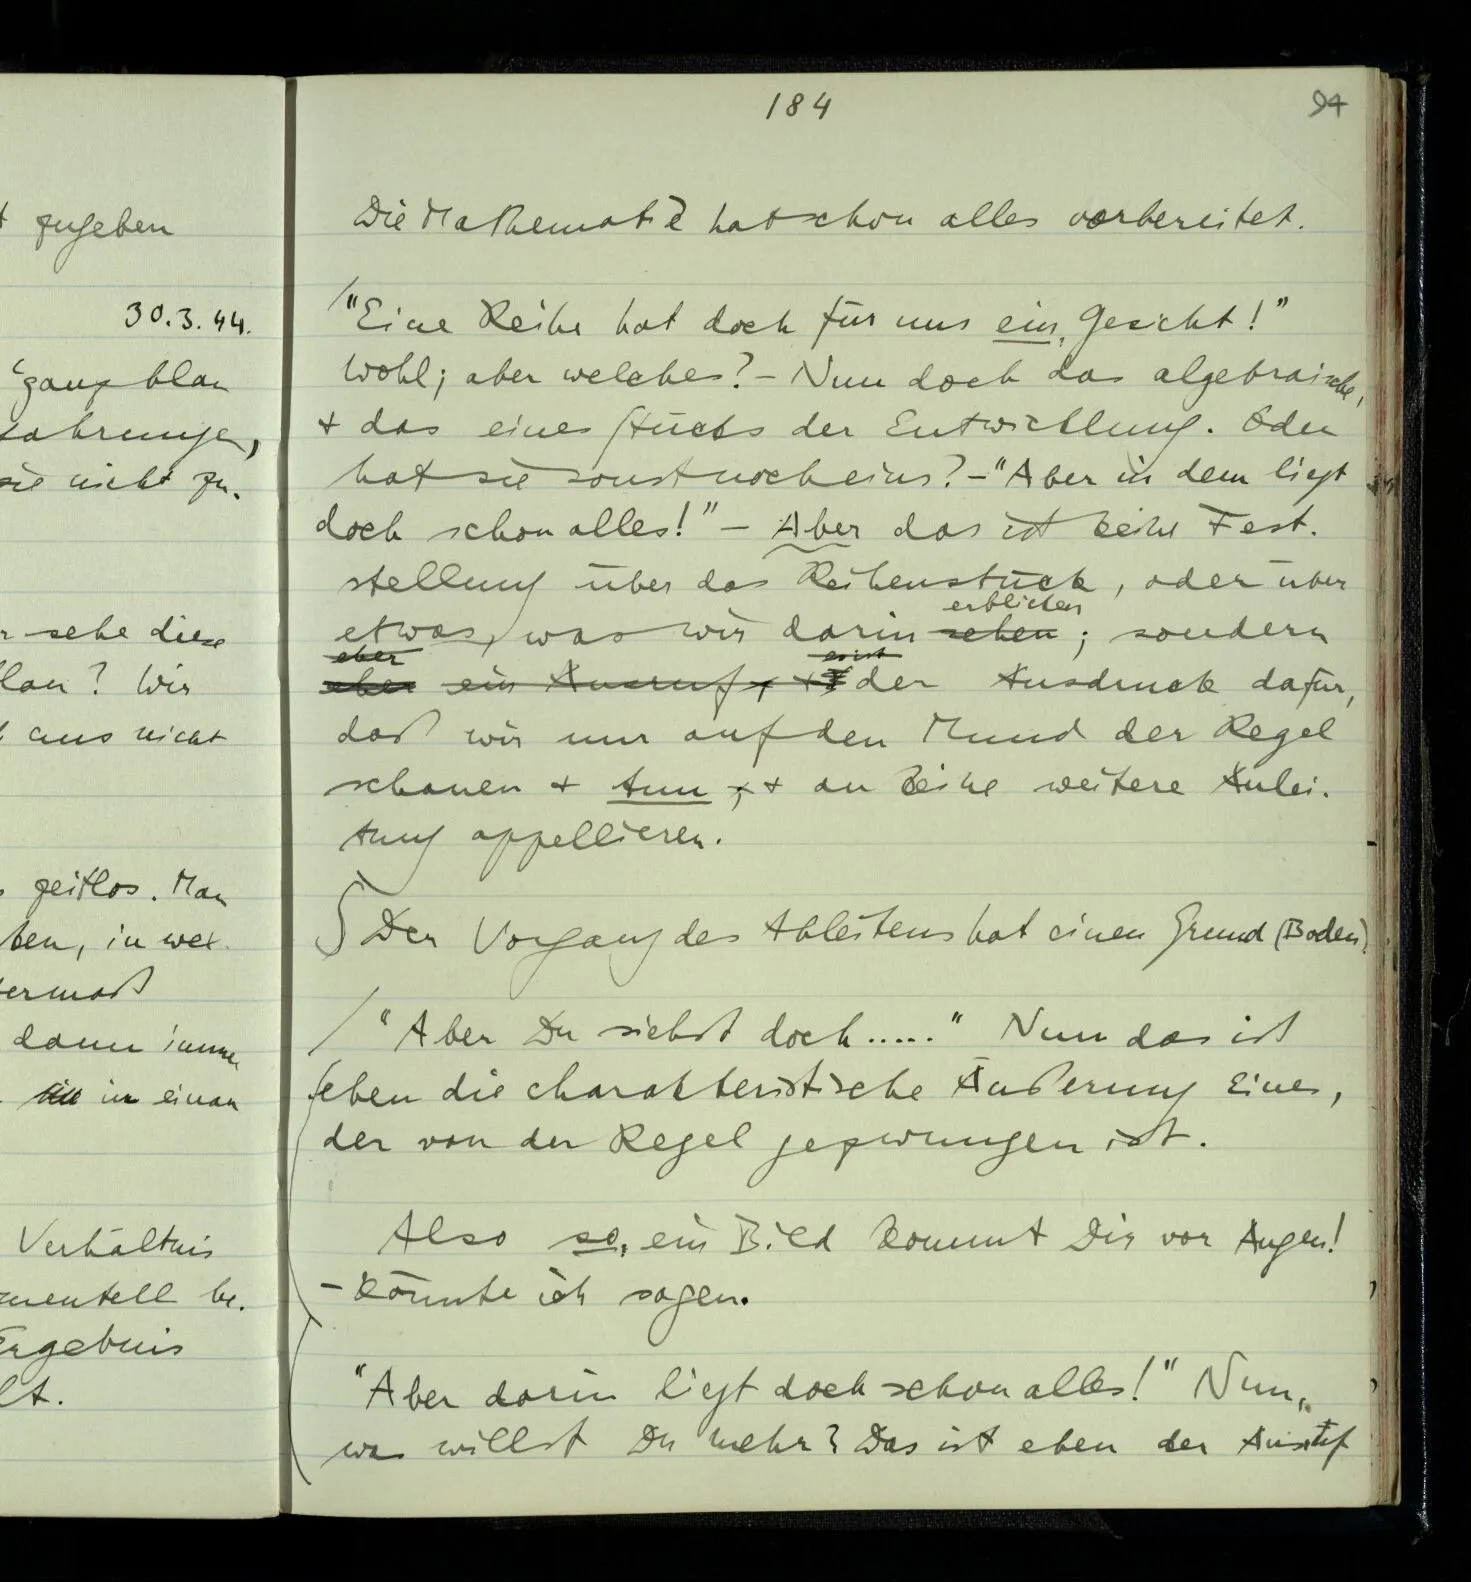 184
94
t zugeben
30.3.44.
"ganz blau
fahrungen,
sie nicht zu.
r sehe diese
blau? Wir
aus nicht
s zeitlos. Man
ten, in wel-
dann immer
in einan
Verhältnis
mentell be.
Ergebnis
lt.
Die Mathematik hat schon alles vorbereitet.
/"Eine Reihe hat doch für uns ein Gesicht!"
Wohl; aber welches? – Nun doch das algebraische,
+ das eines Stücks der Entwicklung. Oder
hat sie sonst noch eins? – "Aber in dem liegt
doch schon alles!" – Aber das ist keine Fest-
stellung über das Reihenstück, oder über
erblicken
etwas, was wir darin sehen; sondern
aber es ist
aber ein Ausruf, + der Ausdruck dafür,
daß wir nur auf den Mund der Regel
schauen + tun, + an keine weitere Anlei-
tung appellieren.
∫ Der Vorgang des Ableitens hat einen Grund (Boden).
/ "Aber Du siehst doch....." Nun das ist
eben die charakteristische Äußerung Eines,
der von der Regel gezwungen ist.
Also so ein Bild kommt Dir vor Augen!
– könnte ich sagen.
"Aber darin liegt doch schon alles!" Nun,
was willst Du mehr? Das ist eben der Ausruf